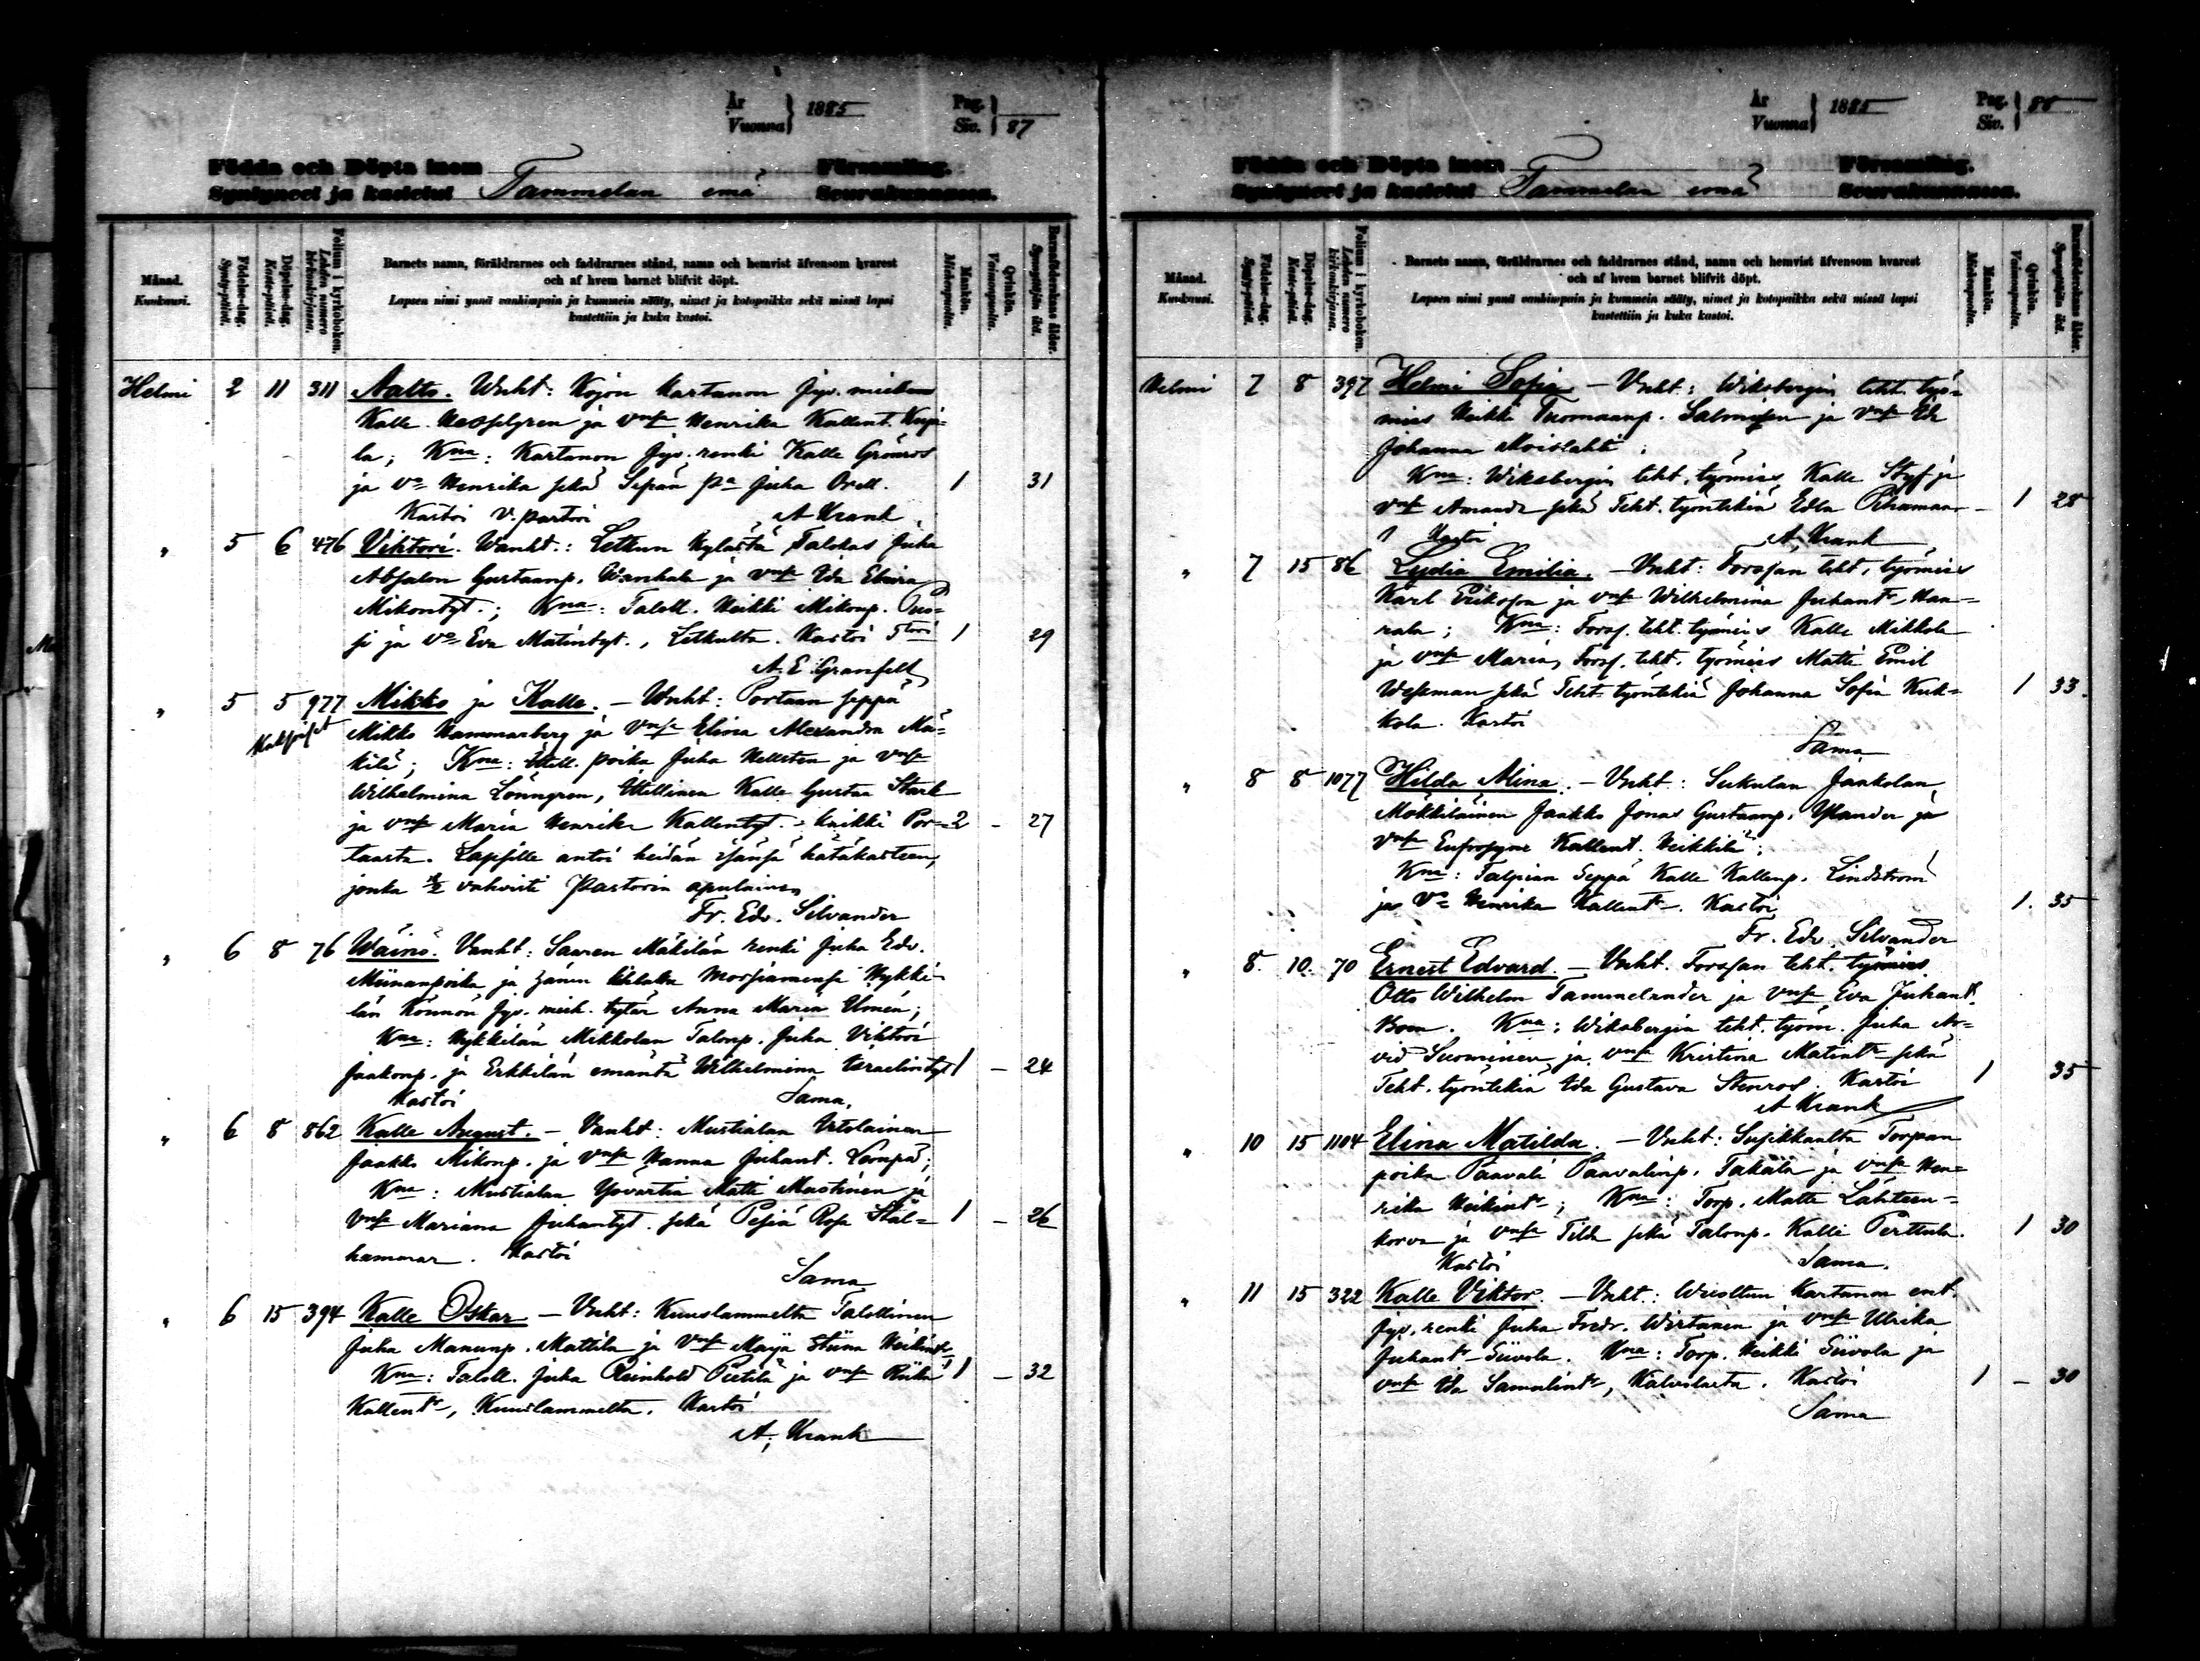 År
Vuonna
1885
Pag.
Siv.
87
Födda och Döpta inom
Församling.
Syntyneet ja kastetut Tammelan emä Seurakunnassa.
Månad.
Kuukausi.
Födelse-dag.
Synty-päivä.
Döpelse-dag.
Kaste-päivä.
Folium i kyrkoboken.
Lehden numero
kirkonkirjassa.
Barnets namn, föräldrarnes och faddrarnes stånd, namn och hemvist äfvensom hvarest
och af hvem barnet blifvit döpt.
Lapsen nimi ynnä vanhimpain ja kummein sääty, nimet ja kotopaikka sekä missä lapsi
kastettiin ja kuka kastoi.
Mankön.
Miehenpuolta.
Qvinkön.
Vaimonpuolta.
Barnaföderskans ålder.
Synnyttäjän ikä.
Helmi 2 11 311 Aalto. Wnht: Kojon Kartanon jyv.
Kalle Hesselgren ja vmsa Henrika Kallent. Kuja-
la; Kna: Kartanon jyv. renki Kalle Grönros
ja vo Henrika sekä Sepän pa Juha Orell. 1 31
Kastoi v. pastori A Krank
" 5 6 476 Viktori. Wanht.: Letkun kylästä Talokas Juha
Absalon Gustaanp. Wanhala ja vmsa Ida Elvira
Mikontyt.; Kna: Taloll. Heikki Mikonp. Pus-
si ja vo Eva Matintyt., Letkulta. Kastoi 1 29
A. E. Granfelt
" 5 5 977 Mikko ja Kalle. - Wnht: Portaan seppä
Kaksoiset Mikko Hammarberg ja vmsa Elina Alexandra Mä-
kilä; Kna: Itsell. poika Juha Hellsten ja vmsa
Wilhelmina Lönngren, Itsellinen Kalle Gustaa Stark
ja vmsa Maria Henrika Kallentyt. - kaikki Por- 2 - 27
taasta. Lapsille antoi heidän isänsä hätäkasteen,
jonka vahvisti Pastorin apulainen
Fr. Edv. Silvander
" 6 8 76 Wäinö. Vanht: Saaren Mäkilän renki Juha Edv.
Miinanpoika ja morsiamensa Hykki-
län Könnön jyv. mieh. tytär Anna Maria Elmén;
Kna: Hykkilän Mikkolan Talonp. Juha Viktori
Jaakonp. ja Erkkilän emäntä Wilhelmina Israelintyt 1 - 24
Kastoi Sama.
" 6 8 862 Kalle August. - Vanht: Mustialan Irtolainen
Jaakko Mikonp. ja vmsa Hanna Juhant. Lempa;
Kna: Mustialan Matti Mustinen ja
vmsa Mariana Juhantyt. sekä Rosa Stål- 1 - 26
hammar. Kastoi
Sama
" 6 15 394 Kalle Oskar - Vnht: Kuuslammelta Talollinen
Juha Manunp. Mattila ja vmsa Maija Stiina Heikint
Kna: Taloll. Juha Reinhold Pietilä ja vmsa Riika 1 - 32
Kallentr, Kuuslammelta. Kastoi
A. Krank
År
Vuonna
1885
Pag.
Siv.
88
Födda och Döpta inom
Församling.
Syntyneet ja kastetut Tammelan emä Seurakunnassa.
Månad.
Kuukausi.
Födelse-dag.
Synty-päivä.
Döpelse-dag.
Kaste-päivä.
Folium i kyrkoboken.
Lehden numero
kirkonkirjassa.
Barnets namn, föräldrarnes och faddrarnes stånd, namn och hemvist äfvensom hvarest
och af hvem barnet blifvit döpt.
Lapsen nimi ynnä vanhimpain ja kummein sääty, nimet ja kotopaikka sekä missä lapsi
kastettiin ja kuka kastoi.
Mankön.
Miehenpuolta.
Qvinkön.
Vaimonpuolta.
Barnaföderskans ålder.
Synnyttäjän ikä.
Helmi 7 8 397 Helmi Sofia - Vnht: Wiksbergin teht. työ-
mies Heikki Tuomaanp. Salonsjön ja vmsa
Johanna Moislahti;
Kna: Wiksbergin teht. työmies Kalle Styf ja
vmsa Amanda sekä Teht. työntekiä Edla - 1 28
Kastoi A. Krank
" 7 15 86 Lydia Emilia. - Vnht: Forssan teht. työmies
Karl Eriksson ja vmsa Wilhelmina Juhantr Haa-
rala; Kna: Forss. teht. työmies Kalle Mikkola
ja vmsa Maria, Forss. teht. työmies Matti Emil
Wessman sekä Teht. työntekiä Johanna Sofia Kuk- 1 33.
kola. Kastoi
Sama
" 8 8 1077 Hilda Alina. - Vnht: Sukulan Jaakolan
Mökkiläinen Jaakko Jonas Gustaanp. Ylander ja
vmsa Eufrosyne Kallent. Heikkilä;
Kna: Talpian Seppä Kalle Kallenp. Lindström
ja vo Henrika Kallentr. Kastoi 1. 35
Fr. Edv. Silvander
" 8. 10. 70 Ernest Edvard. - Vnht. Forssan teht. työmies
Otto Wilhelm Tammelander ja vmsa Eva Juhant.
Bom. Kna: Wiksbergin teht. työm. Juha Ar-
vid Suominen ja vmsa Kristina Matintr sekä
Teht. työntekiä Ida Gustava Stenros. Kastoi 1 35
A Krank
" 10 15 1104 Elina Matilda. - Vnht: Susikkaalta Torpan
poika Paavali Paavalinp. Takala ja vmsa Hen-
rika Heikintr; Kna: Torp. Matti Lähteen-
korva ja vmsa Tilda sekä Talonp. Kalle Perttula. 1 30
Kastoi Sama.
" 11 15 322 Kalle Viktor. - Vnht.: Kartanon ent.
jyv. renki Juha Fredr. Wirtanen ja vmsa Ulrika
Juhantr Siivola. Kna: Torp. Heikki Siivola ja
vmsa Ida Samulintr, Kalvolasta. Kastoi 1 - 30
Sama